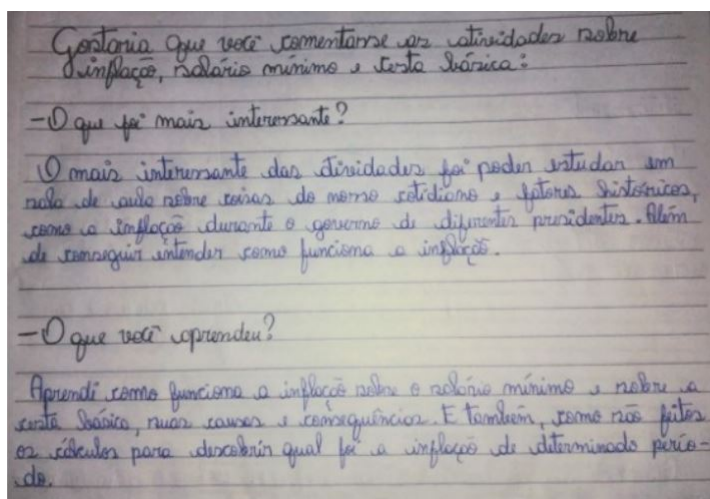 Gostaria que você comentasse as atividades sobre
inflação, salário mínimo e cesta básica:
-O que foi mais interessante?
O mais interessante das atividades foi poder estudar em
sala de aula sobre coisas do nosso cotidiano e fatores históricos,
como a inflação durante o governo de diferentes presidentes. Além
de conseguir intender como funciona a inflação.
-O que você aprendeu?
Aprendi como funciona a inflação sobre o salário mínimo e sobre a
cesta básica, suas causas e consequências. E também, como são feitos
os cálculos para descobrir qual foi a inflação de determinado perío-
do.